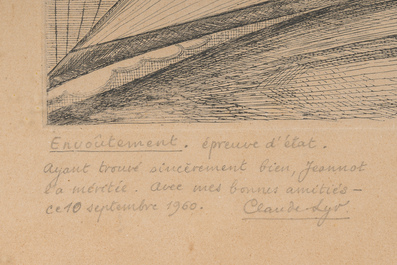 Envoûtement. épreuve d'état.
Ayant trouvé sincèrement bien, Jeannot
l'a méritée. Avec mes bonnes amitiés –
ce 10 septembre 1960. Claude-Lyr